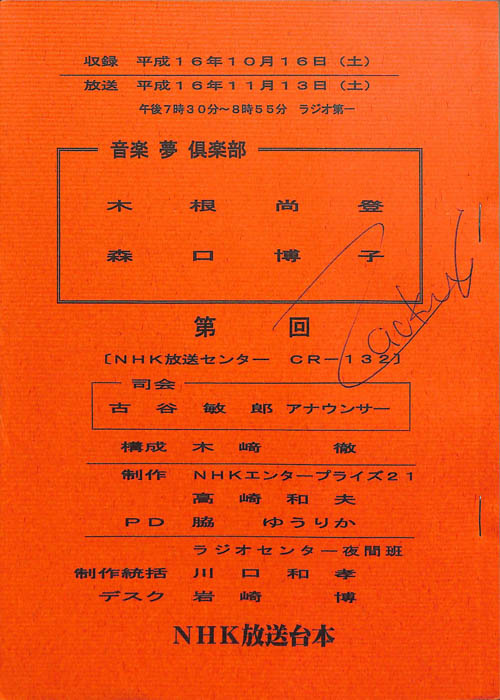 収録 平成16年10月16日(土)
放送 平成16年11月13日(土)
午後7時30分~8時55分 ラジオ第一
音楽 夢 倶楽部
木根尚登
森口博子
第 回
〔NHK放送センター CR-132〕
司会
古谷敏郎 アナウンサー
構成 木﨑 徹
制作 NHKエンタープライズ21
高崎和夫
PD 脇 ゆうりか
ラジオセンター夜間班
制作統括 川口和孝
デスク 岩崎 博
NHK放送台本